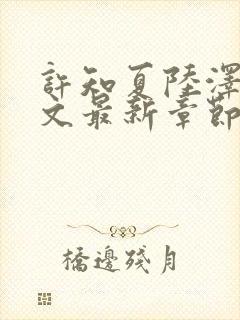 許知夏陸澤
文最新章節
橋邊殘月